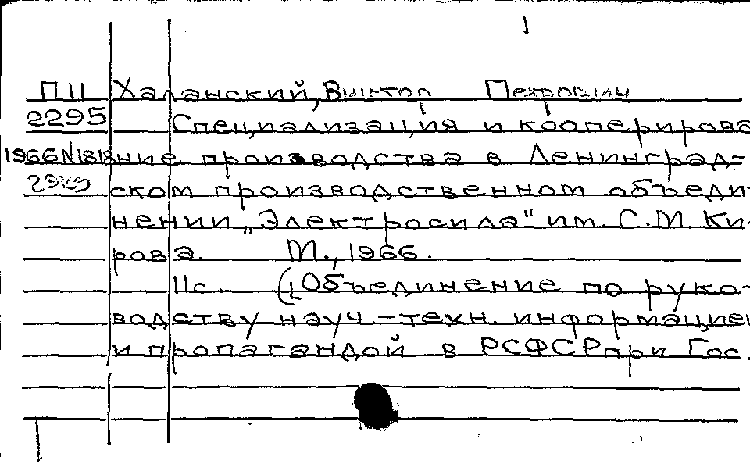 1
П11 Халанский, Виктор Петрович
2295 Специализация и коопериров
1966 N1818 ние производства в Ленинград-
ском производственном объеди-
нении „Электросила" им. С.М. Ки-
рова. М., 1966.
11с. (Объединение по руко-
водству науч-техн. информацией
и пропагандой в РСФСР при Гос.